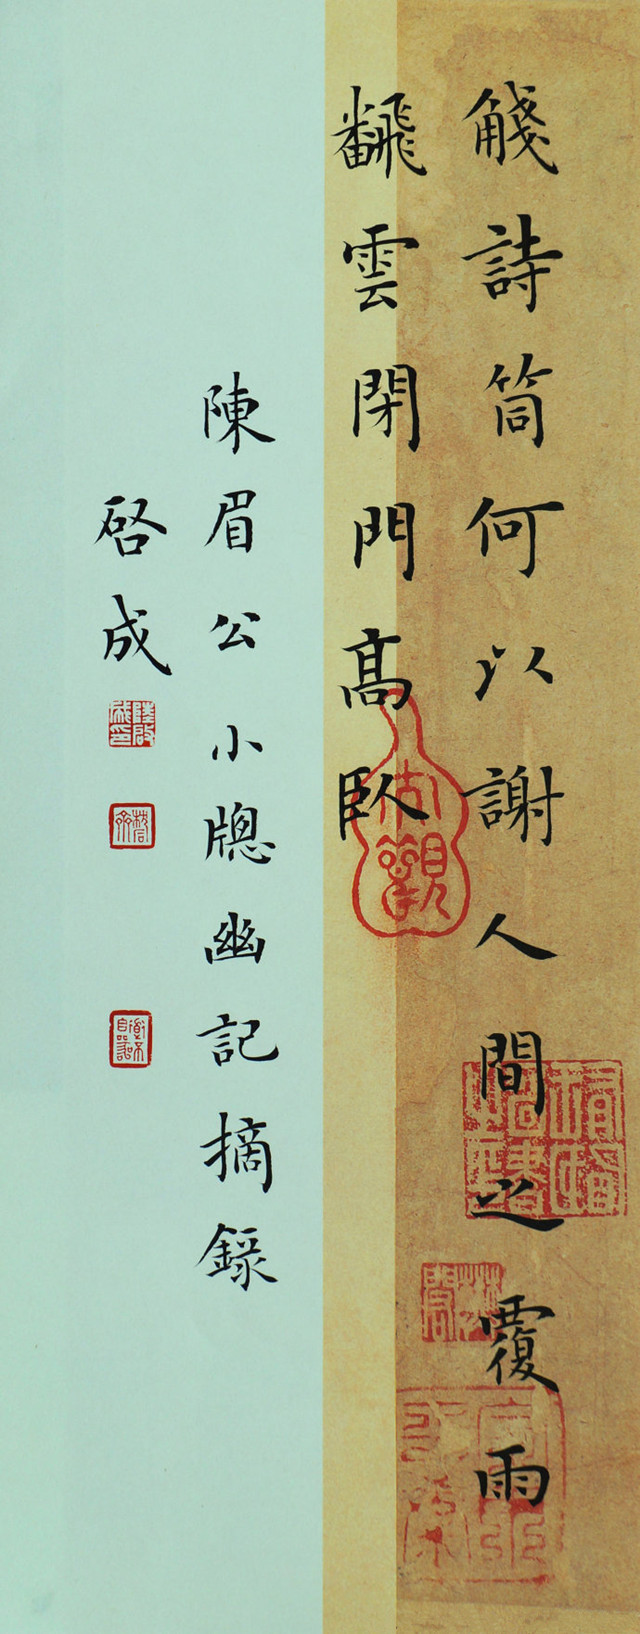 詩筒何以謝人間之覆雨
飜雲閇門髙臥
陳眉公小牎幽記摘錄
啓成